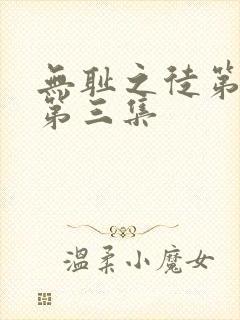 無耻之徒第
第三集
温柔小魔女